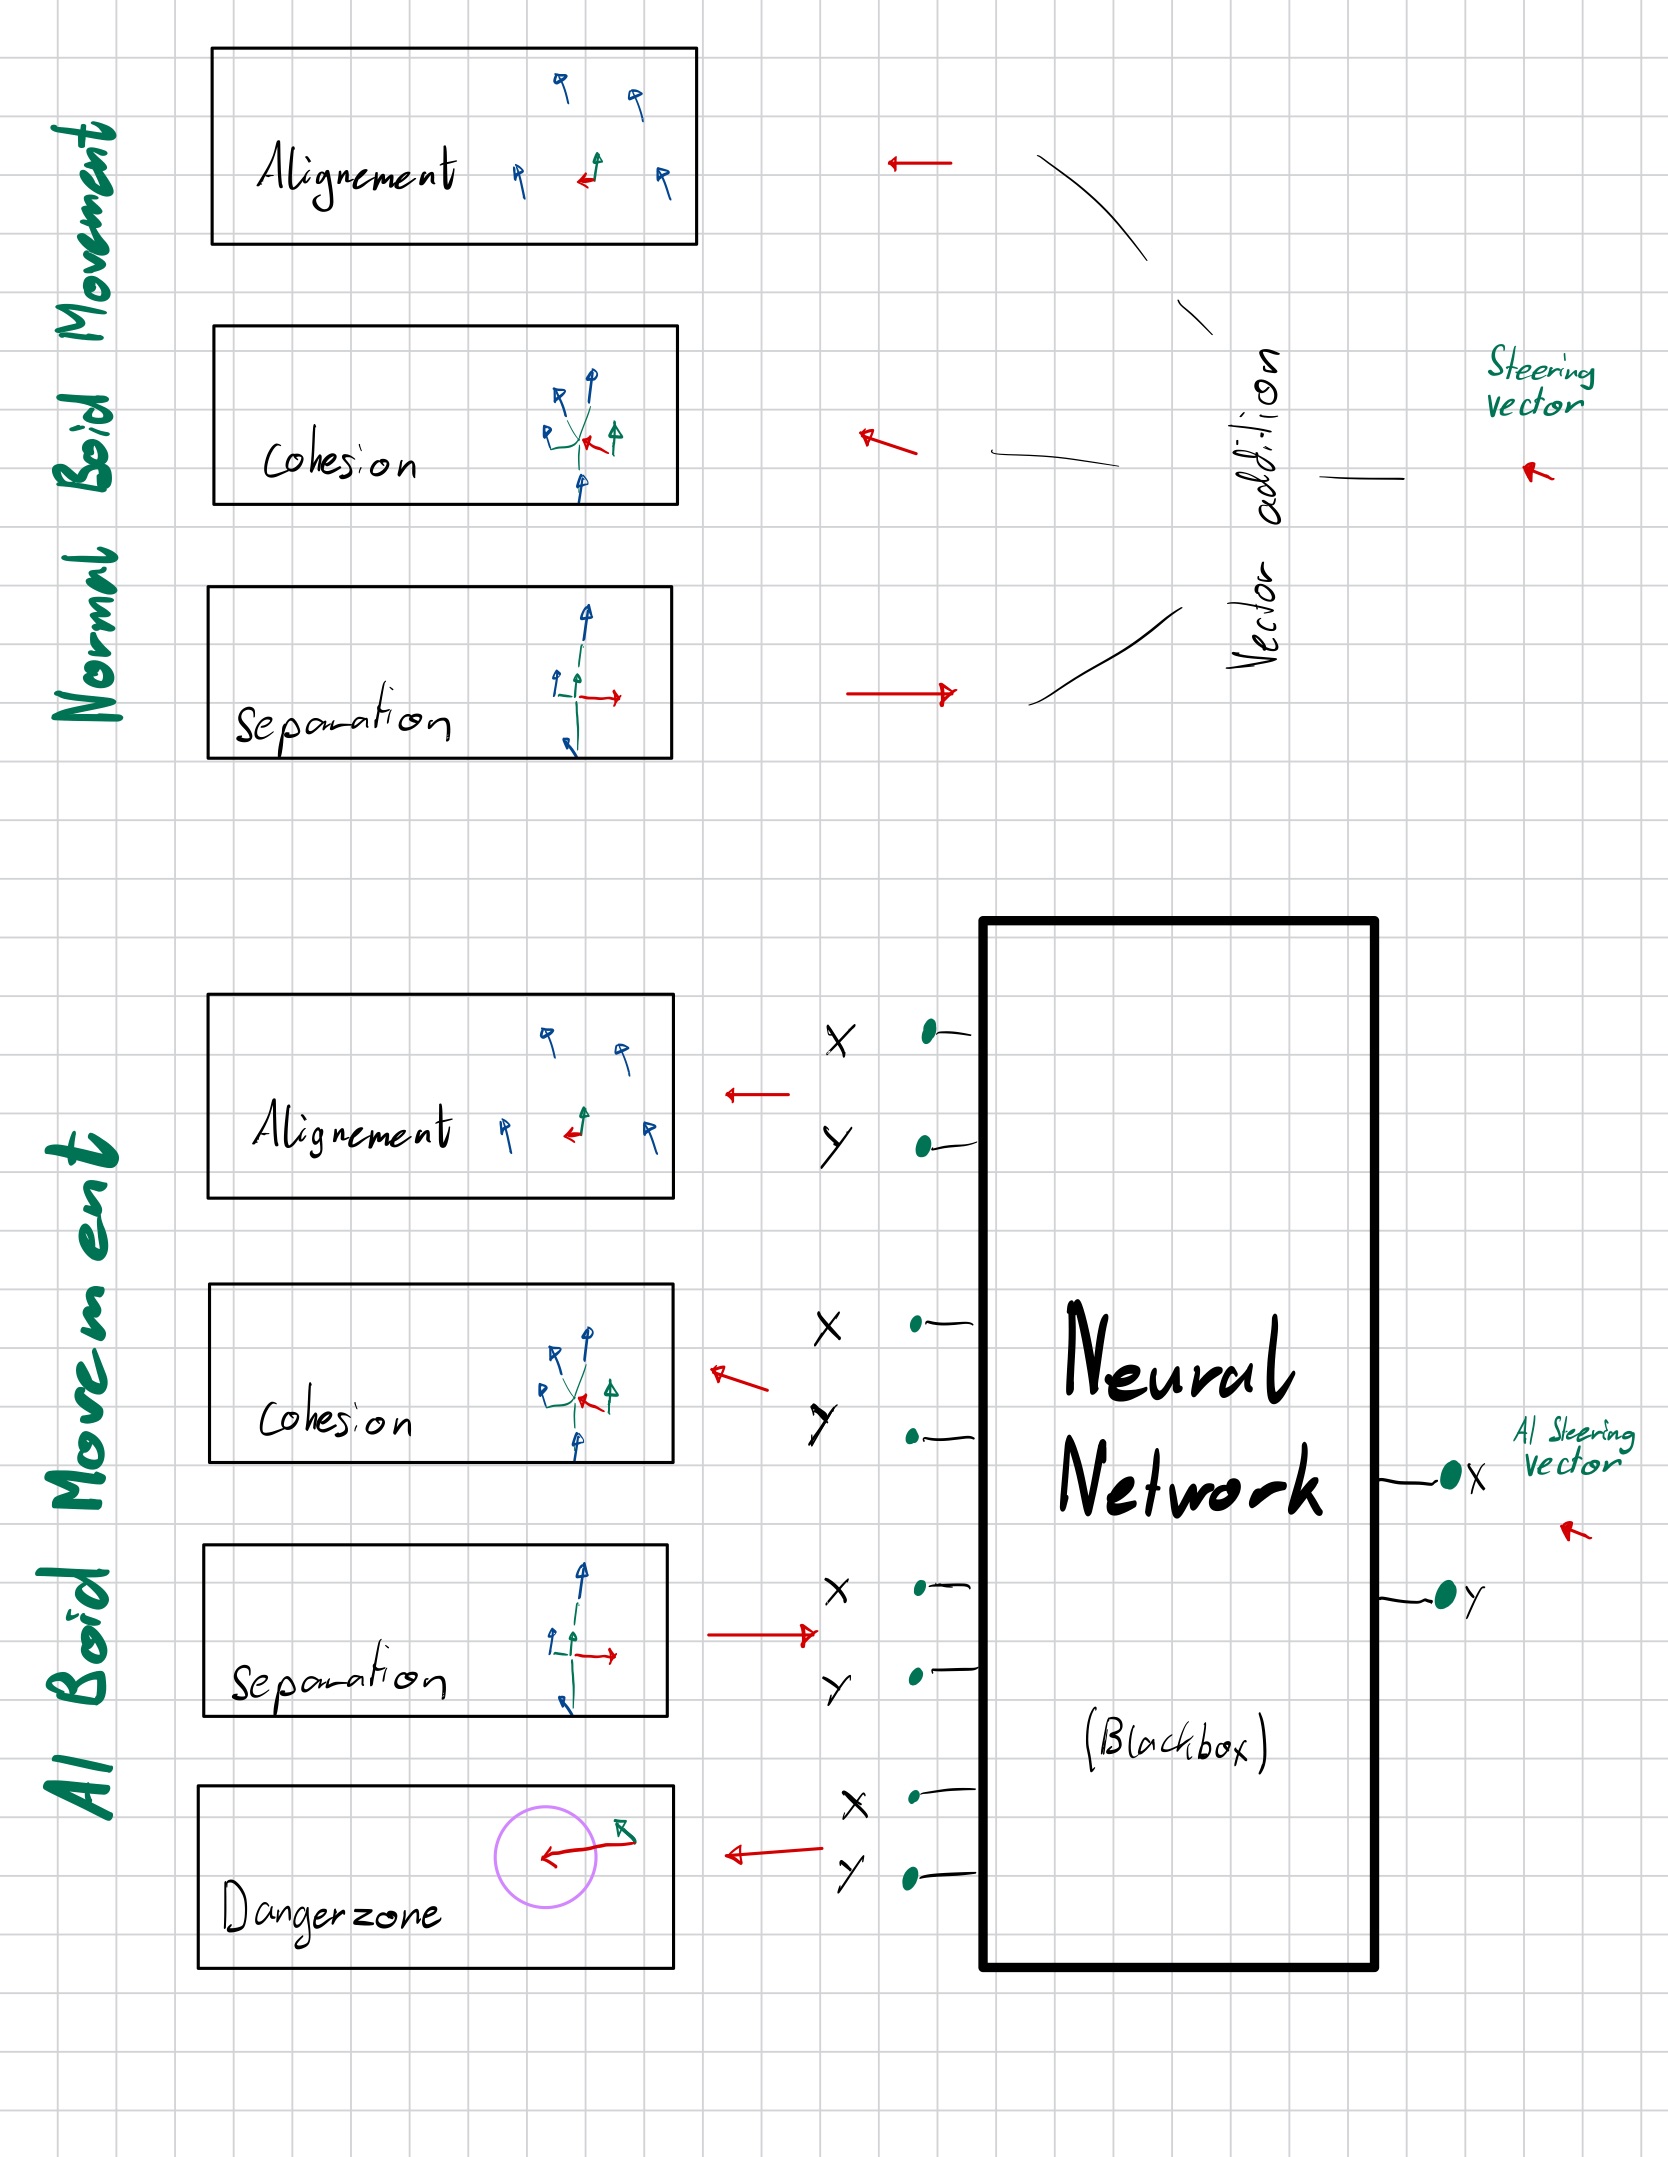 Normal Boid Movement
Alignement
Cohesion
Separation
Vector addition
Steering
vector
AI Boid Movement
Alignement
X
Y
Cohesion
X
Y
Separation
X
Y
Dangerzone
X
Y
Neural
Network
(Blackbox)
X
Y
AI Steering
Vector